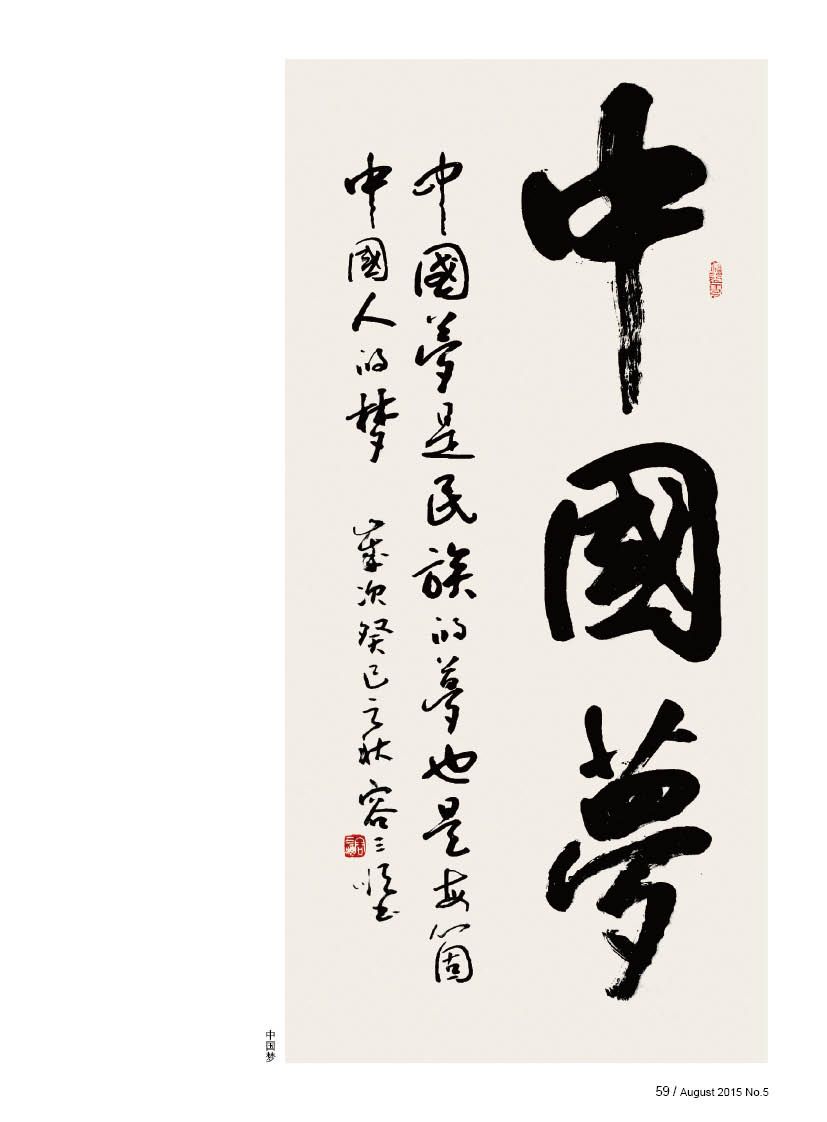 中國夢
中國夢是民族的夢也是每箇
中國人的梦 歲次癸巳之秋 容三惟书
中国梦
59 / August 2015 No.5